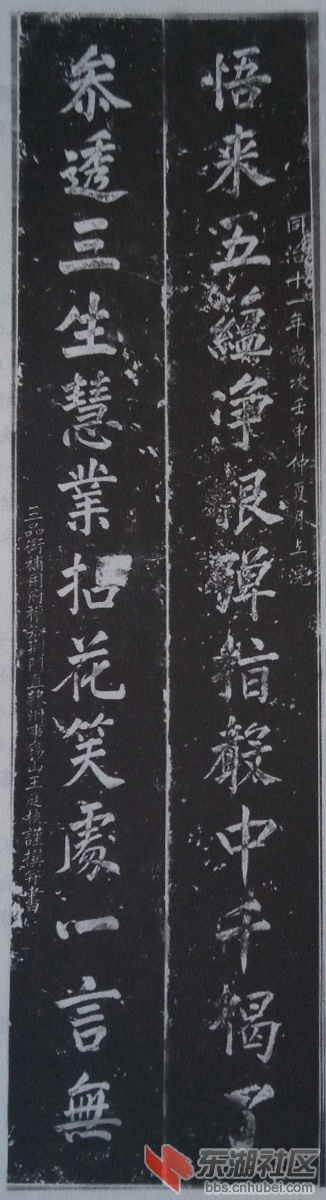 悟来五緼淨根彈指聲中千偈了
同治十一年歲次壬申仲夏月上浣
叅透三生慧業拈花笑處一言無
三品銜補用府荊門直隸州事山王庭楨謹撰并書
东湖社区
bbs.cnhubei.com